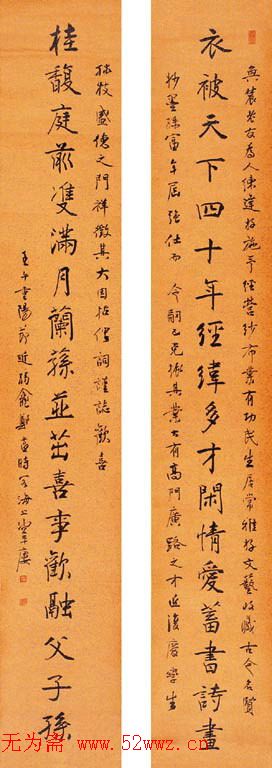 老友為人練達好施予經營紗布業有功民生居常雅好文藝收藏古今名賢
衣被天下四十年經緯多才閑情愛蓄書詩畫
墨殊富年屆強仕而令嗣已克振其業大有高門廣路之才近復慶孿生
盛德之門祥徵其大因拈俚詞謹誌歡喜
桂馥庭前雙滿月蘭蓀並茁喜事歡融父子孫
壬午重陽節時客海上
无为斋 www.52wwz.cn